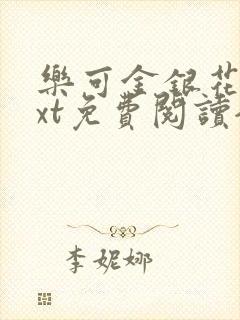 樂可金銀花
xt免費閱讀
李妮娜